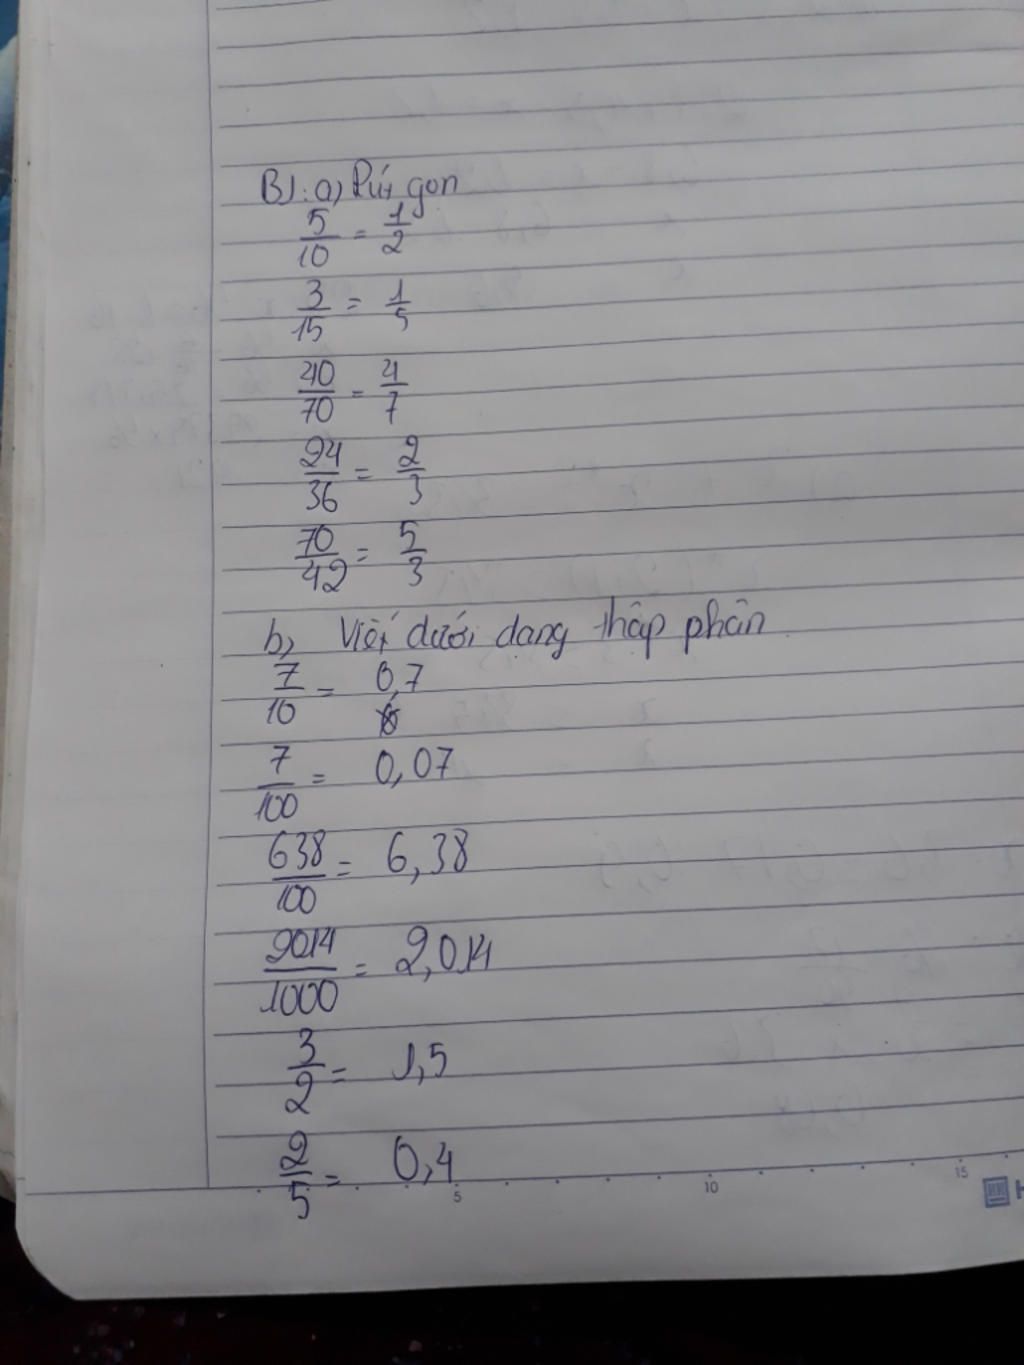 B1: a, Rút gọn
5/10 = 1/2
3/15 = 1/5
40/70 = 4/7
24/36 = 2/3
70/42 = 5/3
b, Viết dưới dạng thập phân
7/10 = 0,7
7/100 = 0,07
638/100 = 6,38
2014/1000 = 2,014
3/2 = 1,5
2/5 = 0,4
5 10 15